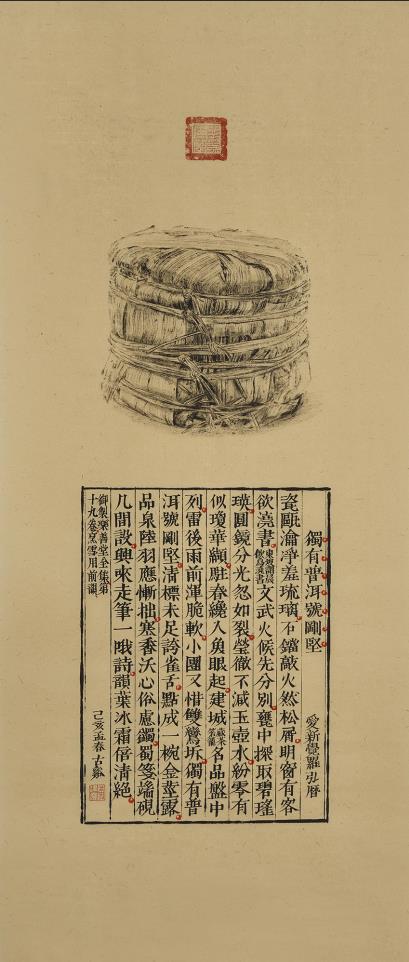 獨有普洱號剛堅 愛新覺羅弘曆
瓷甌瀹淨羞琉璃石鐺敲火然松屑明窗有客
欲澆書東坡謂晨飲為澆書文武火候先分別甕中探取碧瑤
瑛圓鏡分光忽如裂瑩徹不減玉壺冰紛零有
似瓊華纈駐春纔入魚眼起建城名品盤中
列雷後雨前渾脆軟小團又惜雙鸞坼獨有普
洱號剛堅清標未足誇雀舌點成一椀金莖露
品泉陸羽應慚拙寒香沃心俗慮蠲蜀箋端硯
几間設興來走筆一哦詩韻葉冰霜倍清絕
御製樂善堂全集第
十九卷烹雪用前韻
己亥孟春古谿